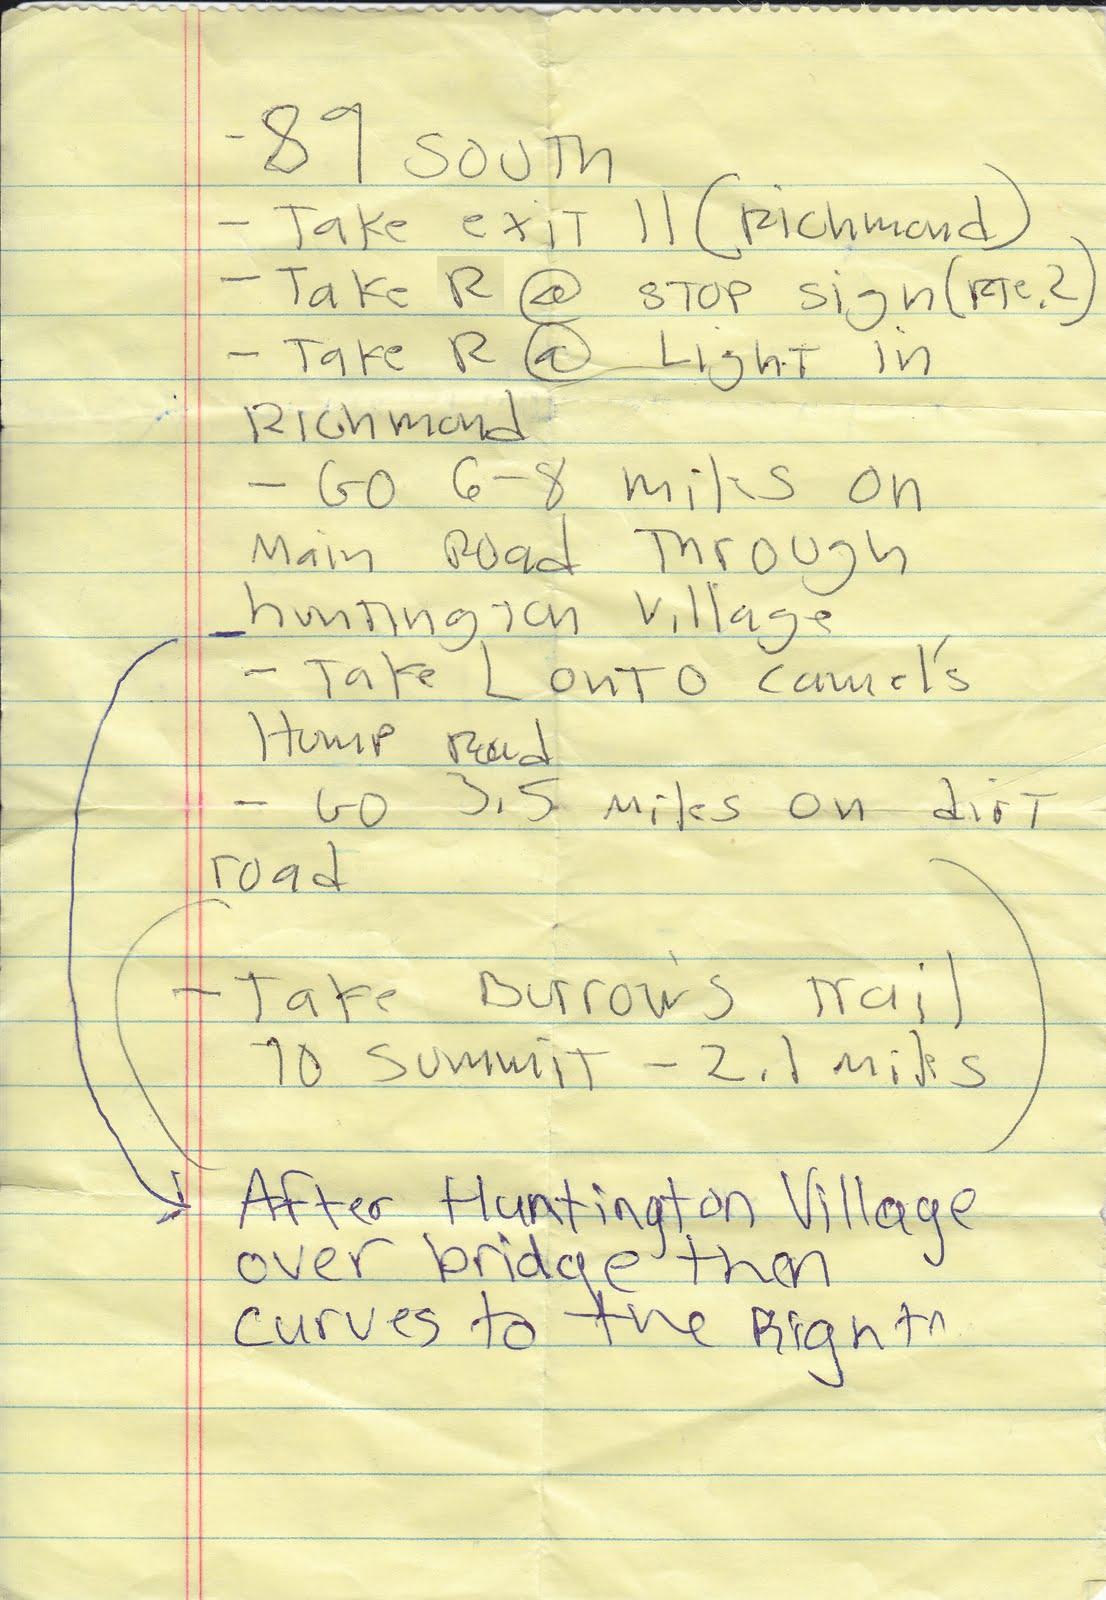 - 89 SOUTH
- Take exit 11 (Richmond)
- Take R @ STOP sign (RTe. 2)
- Take R @ Light in
Richmond
- GO 6-8 miles on
Main Road Through
huntington Village
- Take L onto Camel's
Hump Road
- GO 3.5 miles on dirt
road
- Take Burrow's trail
TO Summit - 2.1 miles
After Huntington Village
over bridge then
curves to the Right